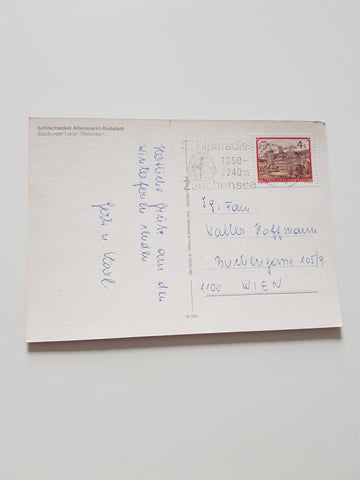 Schischaukel Altenmarkt-Radstadt
Salzburger Land - Österreich
Herzliche Grüße aus den
Winterferien senden
Gerti u. Karl
Schiparadies
1350-
2240m
Zauchensee
4
Fam.
Walter Hoffmann
105/9
1100 WIEN